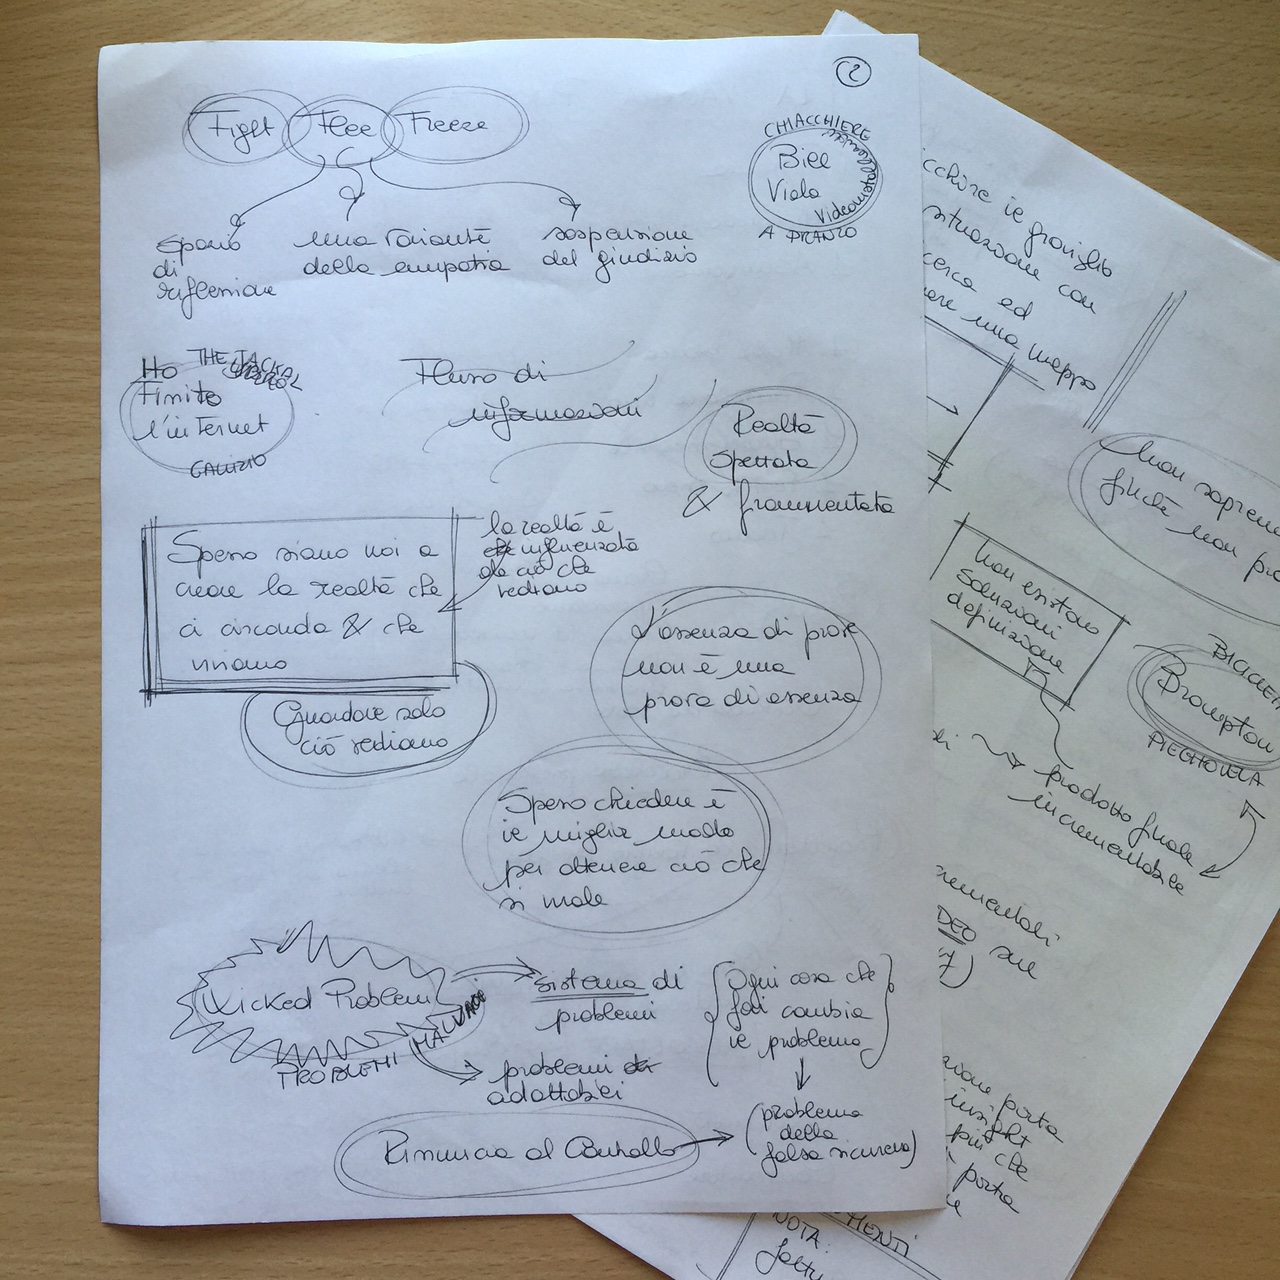 2
Fight Flee Freeze
CHIACCHIERE
Bill
Viola
Videoinstallazioni
A PRANZO
spazio
di
riflessione
una variante
della empatia
sospensione
del giudizio
Ho
Finito
l'internet
THE JACKAL
Flusso di
informazioni
Realtà
Spezzata
& frammentata
Spesso siamo noi a
creare la realtà che
ci circonda & che
viviamo
la realtà è
influenzata
da ciò che
vediamo
Guardare solo
ciò vediamo
L'assenza di prove
non è una
prova di assenza
Spesso chiedere è
il miglior modo
per ottenere ciò che
si vuole
Wicked Problem
PROBLEMI MALVAGI
sistema di
problemi
problemi
adattabili
Ogni cosa che
fai cambia
il problema
Rinuncia al Controllo
(problema
della
falsa sicurezza)
il groviglio
situazione con
ed
una mappa
non sapremo
finché non
non esistono
soluzioni
definizione
BICICLETTA
Brompton
PIEGHEVOLE
prodotto finale
incrementabile
sul
porta
insight
più che
porta
NOTA: